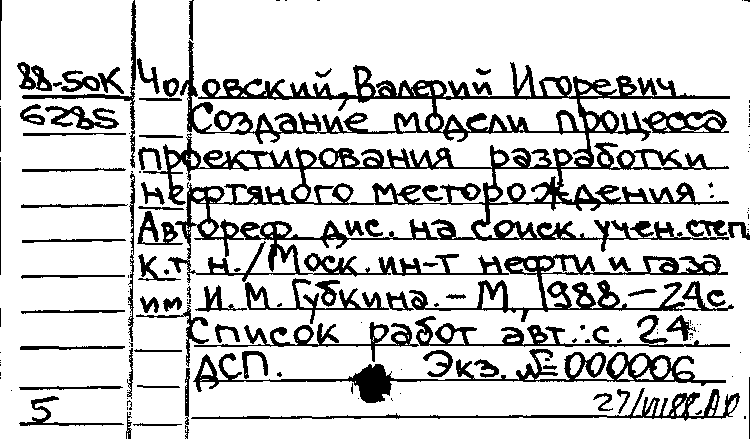 88-50К Чоловский, Валерий Игоревич
6285 Создание модели процесса
проектирования разработки
нефтяного месторождения:
Автореф. дис. на соиск. учен. степ
к.т.н./Моск. ин-т нефти и газа
им И.М. Губкина. - М., 1988. - 24с.
Список работ авт.: с. 24.
ДСП. Экз. №000006
5 27/VII88